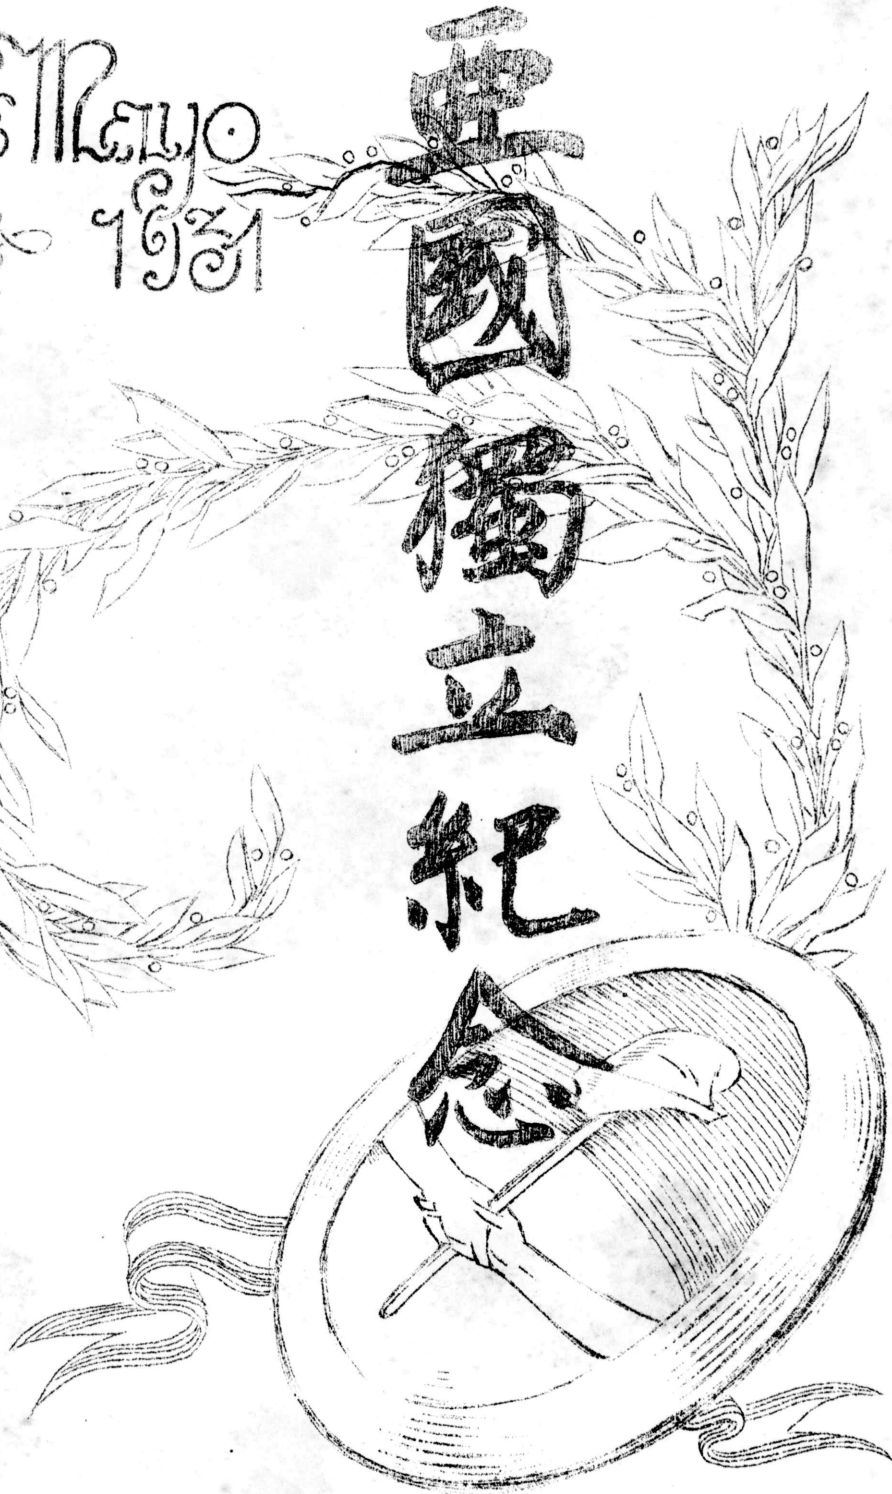 Mayo
1931
亞國獨立紀念